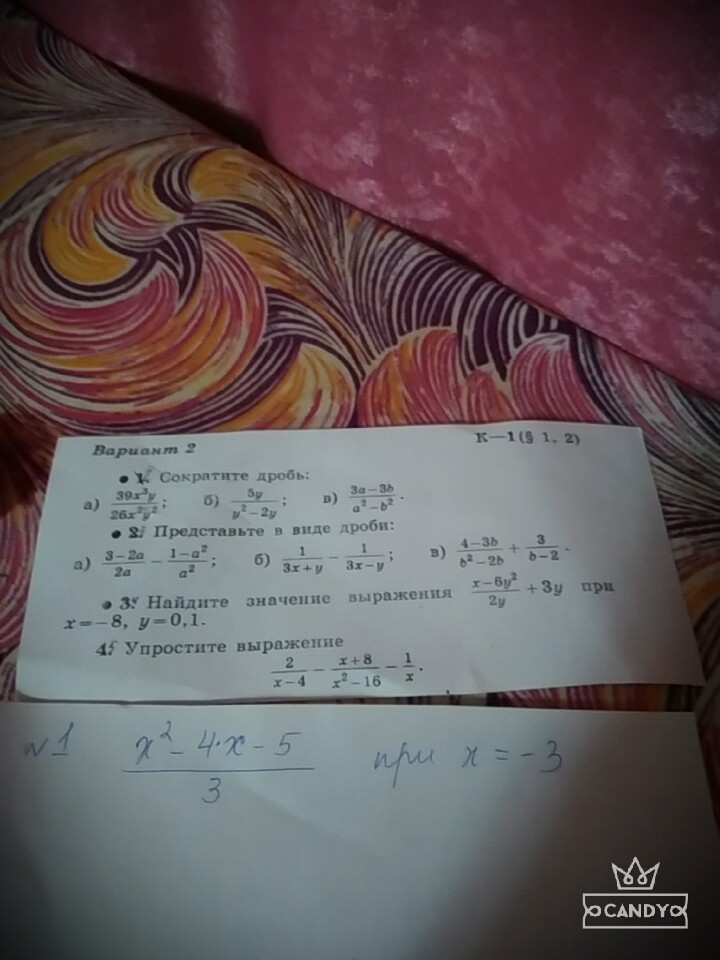 Вариант 2
К—1 (§ 1, 2)
• 1. Сократите дробь:
а) 39x³y / 26x²y²; б) 5y / y² − 2y; в) 3a − 3b / a² − b².
• 2. Представьте в виде дроби:
а) 3 − 2a / 2a − 1 − a² / a²; б) 1 / 3x + y − 1 / 3x − y; в) 4 − 3b / b² − 2b + 3 / b − 2.
• 3. Найдите значение выражения x − 6y² / 2y + 3y при
x = −8, y = 0,1.
4. Упростите выражение
2 / x − 4 − x + 8 / x² − 16 − 1 / x.
№1 x² − 4·x − 5 / 3 при x = −3
CANDY